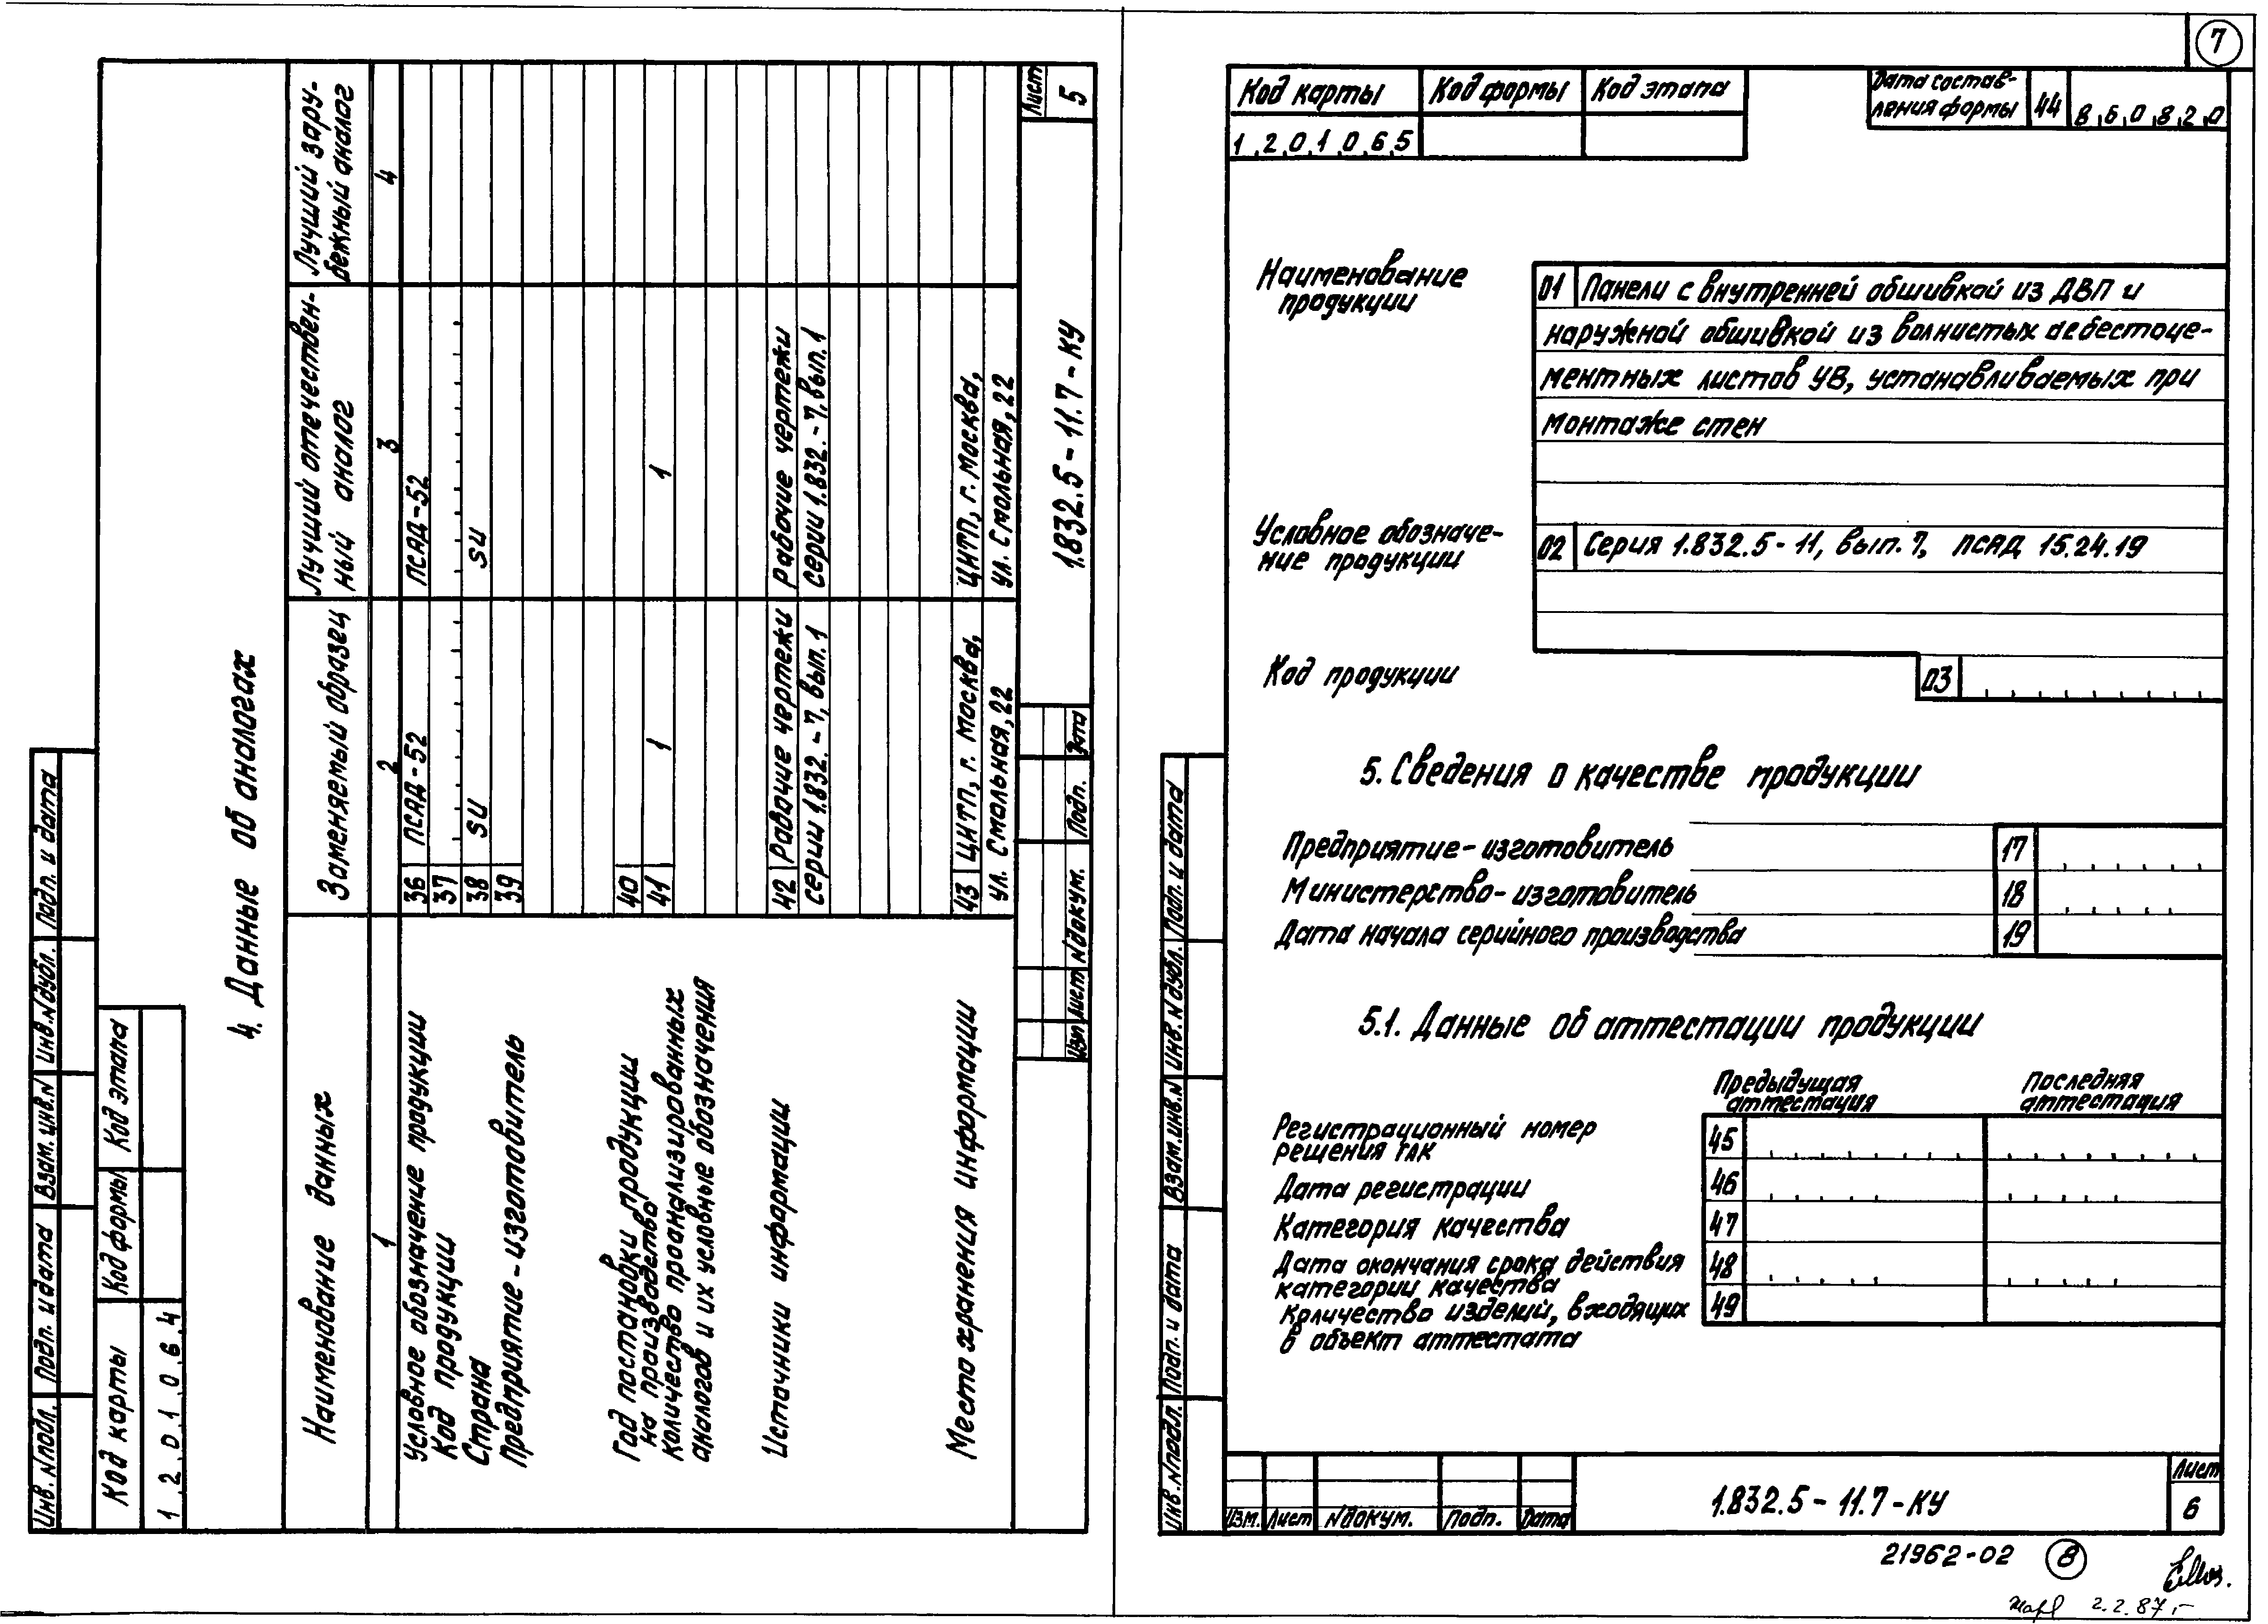 Код карты
Код формы
Код этапа
1.2.0.1.0.6.4
4. Данные об аналогах
Наименование данных
Заменяемый образец
Лучший отечествен-
ный аналог
Лучший зару-
бежный аналог
1
2
3
4
Условное обозначение продукции
36
ПСАД-52
ПСАД-52
Код продукции
37
Страна
38
SU
SU
Предприятие-изготовитель
39
Год постановки продукции
на производство
40
Количество проанализированных
аналогов и их условные обозначения
41
1
1
Источники информации
42
Рабочие чертежи
серии 1.832.-7, вып.1
Рабочие чертежи
серии 1.832.-7, вып.1
Места хранения информации
43
ЦИТП, г. Москва,
ул. Смольная, 22
ЦИТП, г. Москва,
ул. Смольная, 22
Изм
Лист
N докум.
Подп.
Дата
1.832.5-11.7-КУ
Лист
5
Инв. N подл.
Подп. и дата
Взам. инв. N
Инв. N дубл.
Подп. и дата
7
Код карты
Код формы
Код этапа
1.2.0.1.0.6.5
Дата состав-
ления формы
44
8.6.0.8.2.0
Наименование
продукции
01 Панели с внутренней обшивкой из ДВП и
наружной обшивкой из волнистых асбестоце-
ментных листов УВ, устанавливаемых при
монтаже стен
Условное обозначе-
ние продукции
02 Серия 1.832.5-11, вып. 7, ПСАД 15.24.19
Код продукции
03
5. Сведения о качестве продукции
Предприятие-изготовитель 17
Министерство-изготовитель 18
Дата начала серийного производства 19
5.1. Данные об аттестации продукции
Предыдущая
аттестация
Последняя
аттестация
Регистрационный номер
решения ГАК
45
Дата регистрации 46
Категория качества 47
Дата окончания срока действия
категории качества
48
Количество изделий, входящих
в объект аттестата
49
Инв. N подл.
Подп. и дата
Взам. инв. N
Инв. N дубл.
Подп. и дата
Изм.
Лист
N докум.
Подп.
Дата
1.832.5-11.7-КУ
Лист
6
21962-02
8
2.2.87г